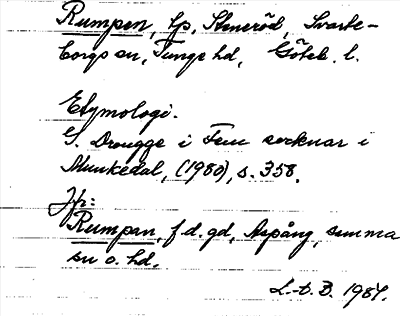 Rumpen, lp, Steneröd, Svarte-
borgs sn, Tunge hd, Göteb. l.
Etymologi.
G. Drougge i Fem socknar i
Munkedal, (1980), s. 358.
Jfr:
Rumpan, f.d. gd, Aspång, samma
sn o. hd.
L-t. B. 1984.